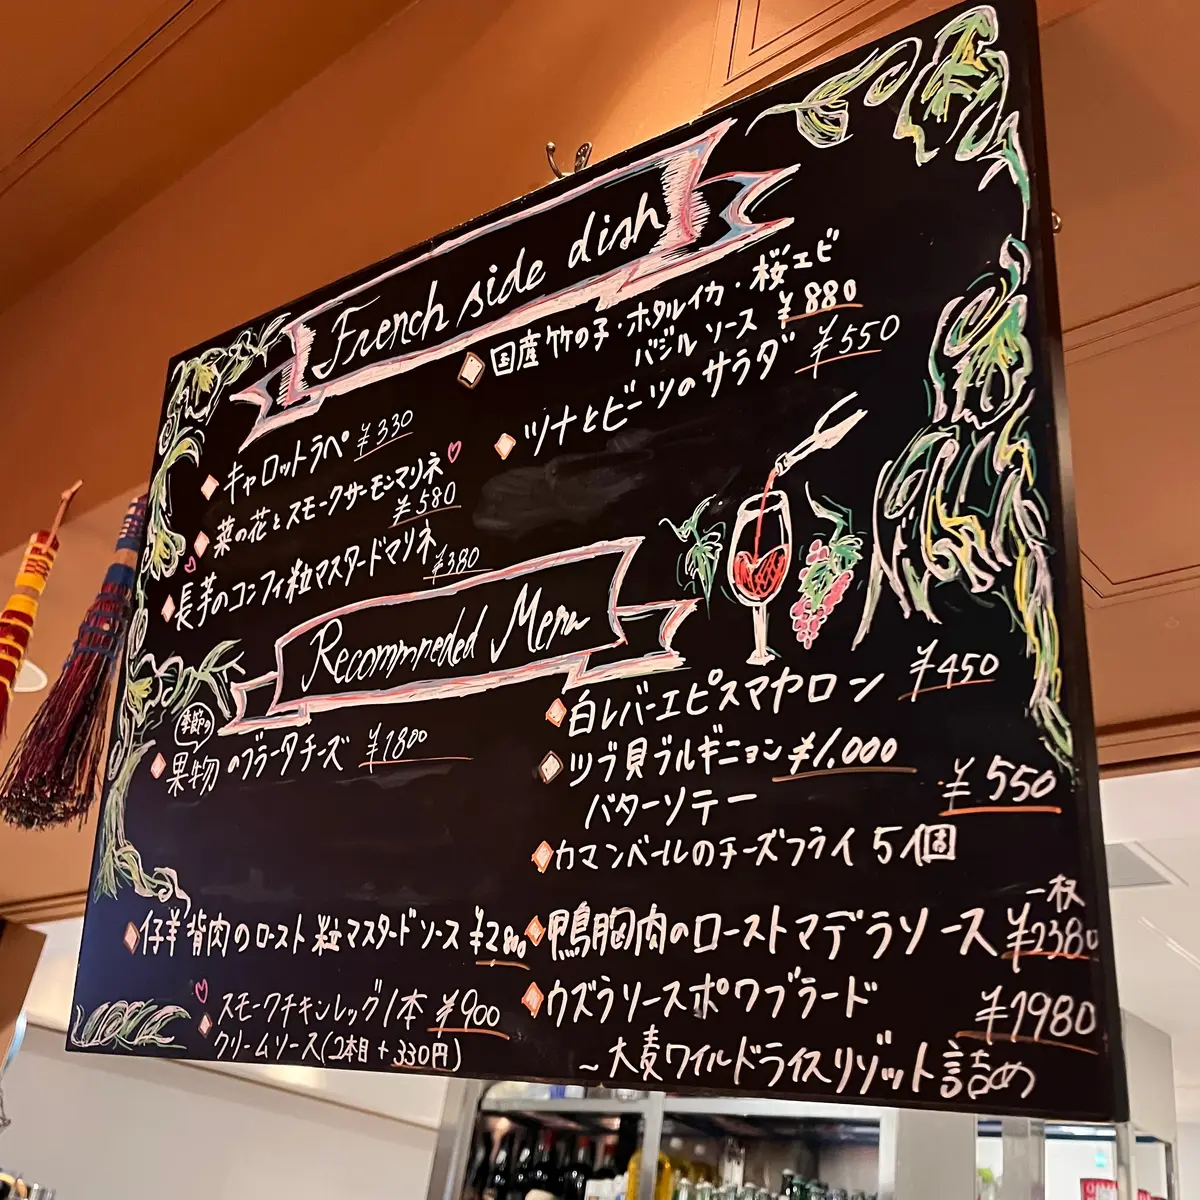 French side dish
国産竹の子・ホタルイカ・桜エビ
バジルソース ¥880
ツナとビーツのサラダ ¥550
キャロットラペ ¥330
菜の花とスモークサーモンマリネ
¥580
長芋のコンフィ粒マスタードマリネ
¥380
Recommneded Menu
季節の
果物のブラータチーズ ¥1800
白レバーエピスマカロン ¥450
ツブ貝ブルギニョン ¥1,000
バターソテー
¥550
カマンベールのチーズフライ 5個
仔羊背肉のロースト粒マスタードソース ¥2,800
一枚
鴨胸肉のローストマデラソース ¥2380
スモークチキンレッグ1本 ¥900
クリームソース(2本目+330円)
ウズラソースポワブラード
¥1980
~大麦ワイルドライスリゾット詰め